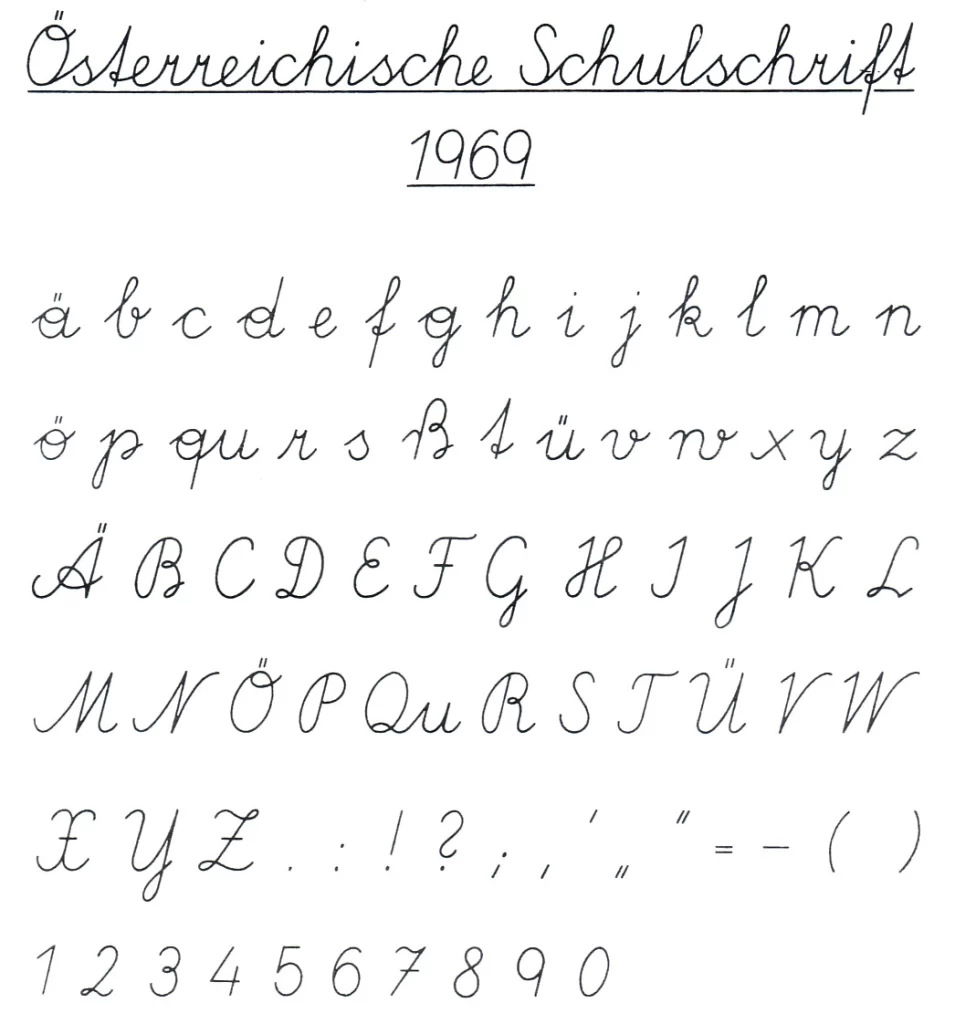 Österreichische Schulschrift
1969
ä b c d e f g h i j k l m n
ö p qu r s ß t ü v w x y z
Ä B C D E F G H I J K L
M N Ö P Qu R S T Ü V W
X Y Z . : ! ? ; , ' „ " = - ( )
1 2 3 4 5 6 7 8 9 0